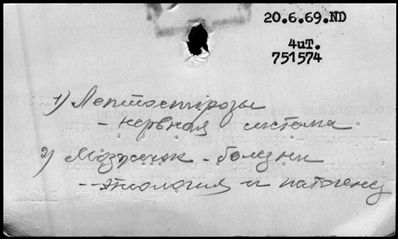 20.6.69.ND
4иТ.
751574
1) Лептоспирозы
- нервная система
2) Мозжечок - болезни
- этиология и патогенез